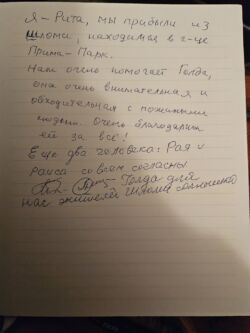 Я – Рита, мы прибыли из
Шломи, находимся в г-це
Прима – Парк.
Нам очень помогает Голда,
она очень внимательная и
обходительная с пожилыми
людьми. Очень благодарим
её за всё!
Еще два человека: Рая и
Раиса совсем согласны
Голда для
нас жителей Шломи